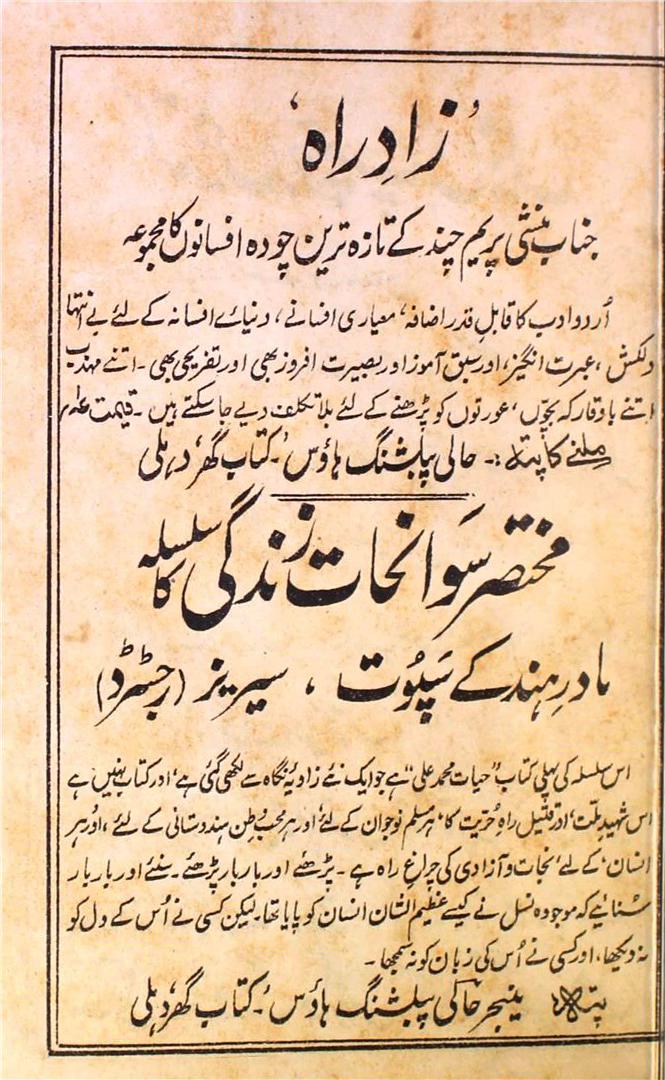 ’زادِ راہ‘
جناب منشی پریم چند کے تازہ ترین چودہ افسانوں کا مجموعہ
اُردو ادب کا قابلِ قدر اضافہ، معیاری افسانے، دنیائے افسانہ کے لئے بے انتہا
دلکش، عبرت انگیز، اور سبق آموز اور بصیرت افروز بھی اور تفریحی بھی۔ اتنے مہذب
اتنے باوقار کہ بچّوں، عورتوں کو پڑھنے کے لئے بلا تکلف دیے جا سکتے ہیں۔ قیمت
ملنے کا پتہ:۔ حالی پبلشنگ ہاؤس، کتاب گھر، دہلی
مختصر سَوانحات زندگی کا سلسلہ
مادرِ ہند کے سَپُوت، سیریز (رجسٹرڈ)
اس سلسلہ کی پہلی کتاب ”حیات محمد علی“ ہے جو ایک نئے زاویۂ نگاہ سے لکھی گئی ہے، اور کتاب نہیں ہے
اس شہیدِ ملّت، اور قتیل راہِ حُرّیت کا، ہر مسلم نوجوان کے لئے، اور ہر محبِ وطن ہندوستانی کے لئے، اور ہر
انسان، کے لئے، نجات و آزادی کی چراغِ راہ ہے۔ پڑھئے اور بار بار پڑھئے۔ سنئے اور بار بار
سُنائیے کہ موجودہ نسل نے کیسے عظیم الشان انسان کو پایا تھا۔ لیکن کسی نے اُس کے دل کو
نہ دیکھا، اور کسی نے اُس کی زبان کو نہ سمجھا۔
پتہ منیجر حالی پبلشنگ ہاؤس، کتاب گھر دہلی